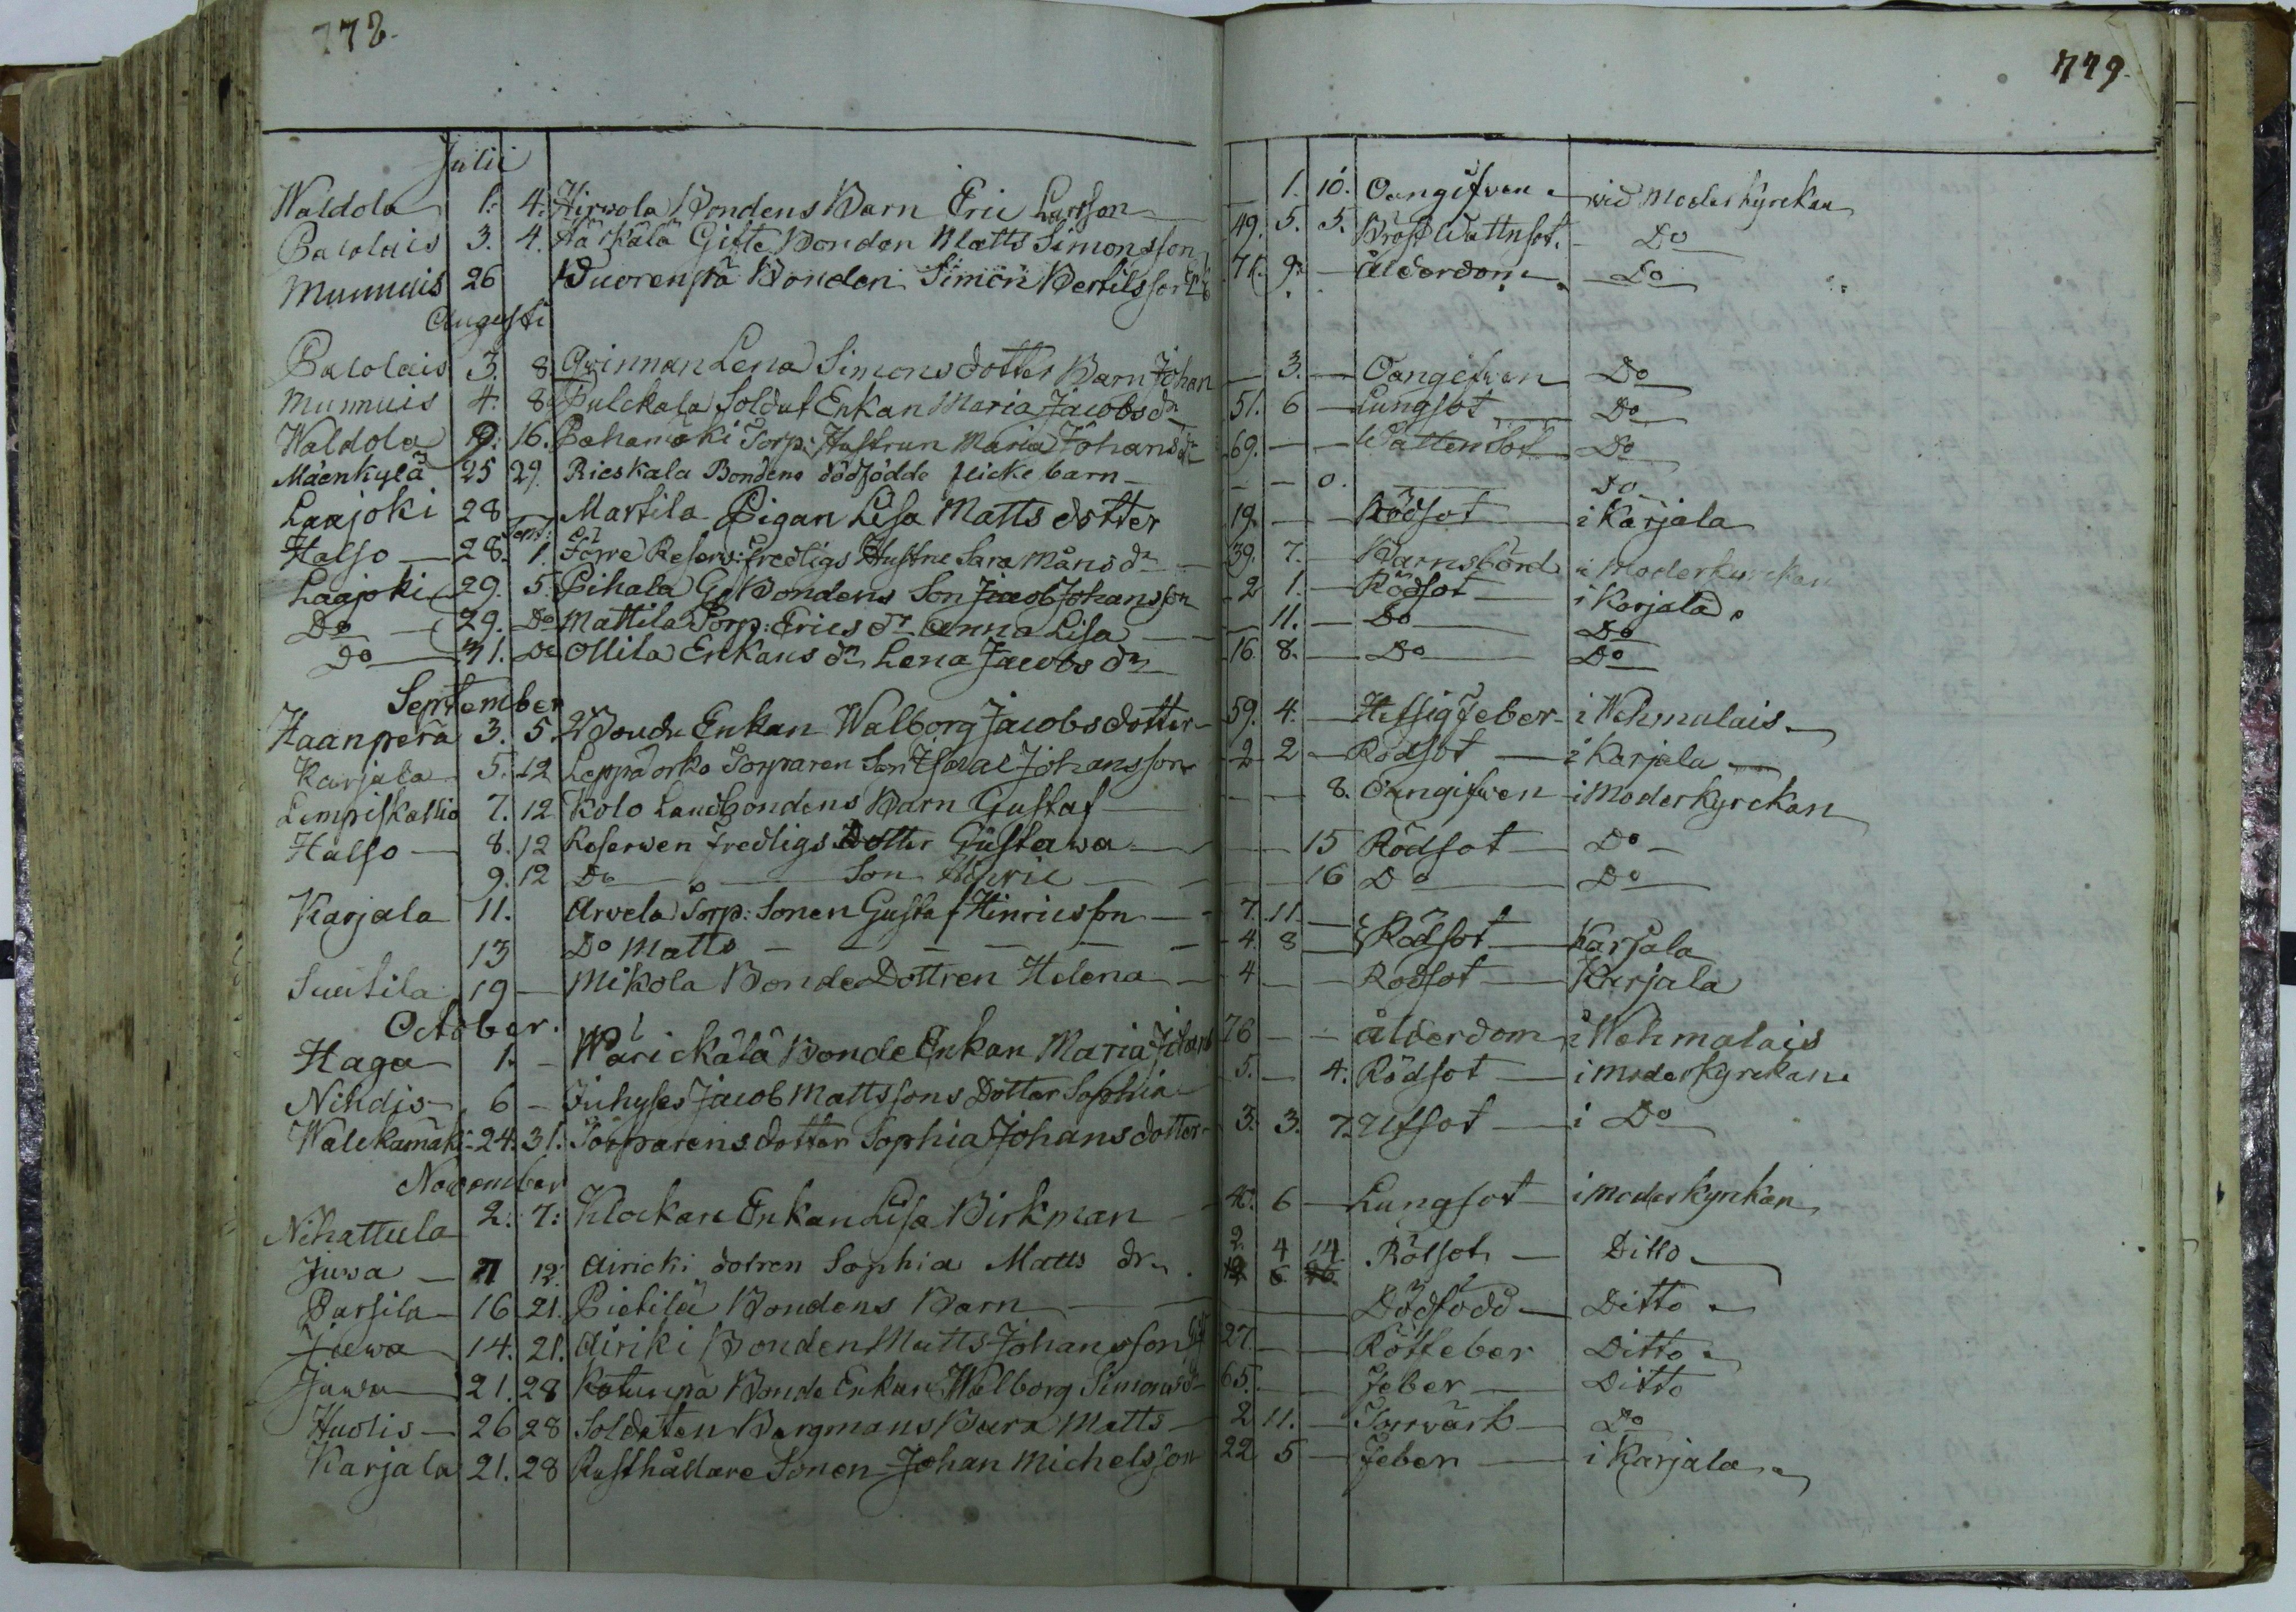 778.
779.
Julii
Waldola 1. 4. Hirvola Bondens Barn Eric Larsson 1. 10. Oangifven wid Moderkyrckan
Palolais 3. 4. Härkälä Gifte Bonden Matts Simonsson 49. 5. 5. Bröst Wattusot. Do
Munnuis 26 Wuorenpä Bonden Simon Bertilsson 71. 9. ålderdom Do
Augusti
Palolais 3. 8 Qwinnan Lena Simonsdotter Barn Johan 3. Oangifven Do
Munnuis 4. 8 Pulckala Soldat Enkan Maria Jacobs dr 51. 6 Lungsot Do
Waldola 9. 16. Pahamäki Torp: Hustrun Maria Johans dr 69. Wattensot Do
Mäenkylä 25 29. Rieskala Bondens dödfödde flicke barn 0. Do
Laajoki 28 Martila Pigan Lisa Matts dotter 19. Rödsot i Karjala
Halso 28. Sept: 1. Torre Reserv: Fredligs Hustru Sara Måns dr 39. 7. Barnsbörd i Moderkyrckan
Laajoki 29. 5. Pihala G Bondens Son Jacob Johansson 2 1. Rödsot i Karjala
Do 29. Do Mattila Torp: Erics dr Anna Lisa 11. Do Do
Do 31. Do Ollila Enkans dr Lena Jacobs dr 16. 8. Do Do
September
Haanperä 3. 5. Bonde Enkan Walborg Jacobsdotter 59. 4. Hetsig Feber i Wehmalais
Karjala 5. 12 Leppäorko Torparen Son Isaac Johansson 2 2 Rödsot i Karjala
Lempiskallio 7. 12 Kolo Landbondens Barn Gustaf 8. Oangifven i Moderkyrckan
Halso 8. 12 Reserven Fredligs Dotter Gustawa 15 Rödsot Do
9. 12 Do Son Hinric 16 Do Do
Karjala 11. Arvela Torp: Sonen Gustaf Hinricsson 7. 11
13 Do Matts 4. 8 Rödsot Karjala
Suutila 19 Mikola Bonde Dottren Helena 4 Rödsot Karjala
October.
Haga 1. Warickälä Bonde Enkan Maria 76 ålderdom i Wehmalais
Nihdis 6 Jacob Mattssons Dotter Sophia 5. 4. Rödsot i Moderkyrckan
Walckamäki 24. 31. Torparens dotter Sophia Johans dotter 3. 3. 7. Utsot i Do
November
Nihattula 2. 7: Klockare Enkan Lisa Birkman 46. 6 Lungsot i Moderkyrckan
Juva 7 12. Airicki dotren Sophia Matts dr. 2. 4 14. Rötsot Ditto
Parsila 16. 21. Pietilä Bondens Barn Dödfödd Ditto
Juwa 14. 21. Airiki Bonden Matts Johansson 27. Rötfeber Ditto
Juwa 21. 28 Katunpä Bonde Enkan Walborg Simons dr 65. Feber Ditto
Hudis 26 28 Soldaten Bergmans Barn Matts 2 11. Torrvärk Do
Karjala 21. 28 Rusthållare Sonen Johan Michelsson 22 5 Feber i Karjala